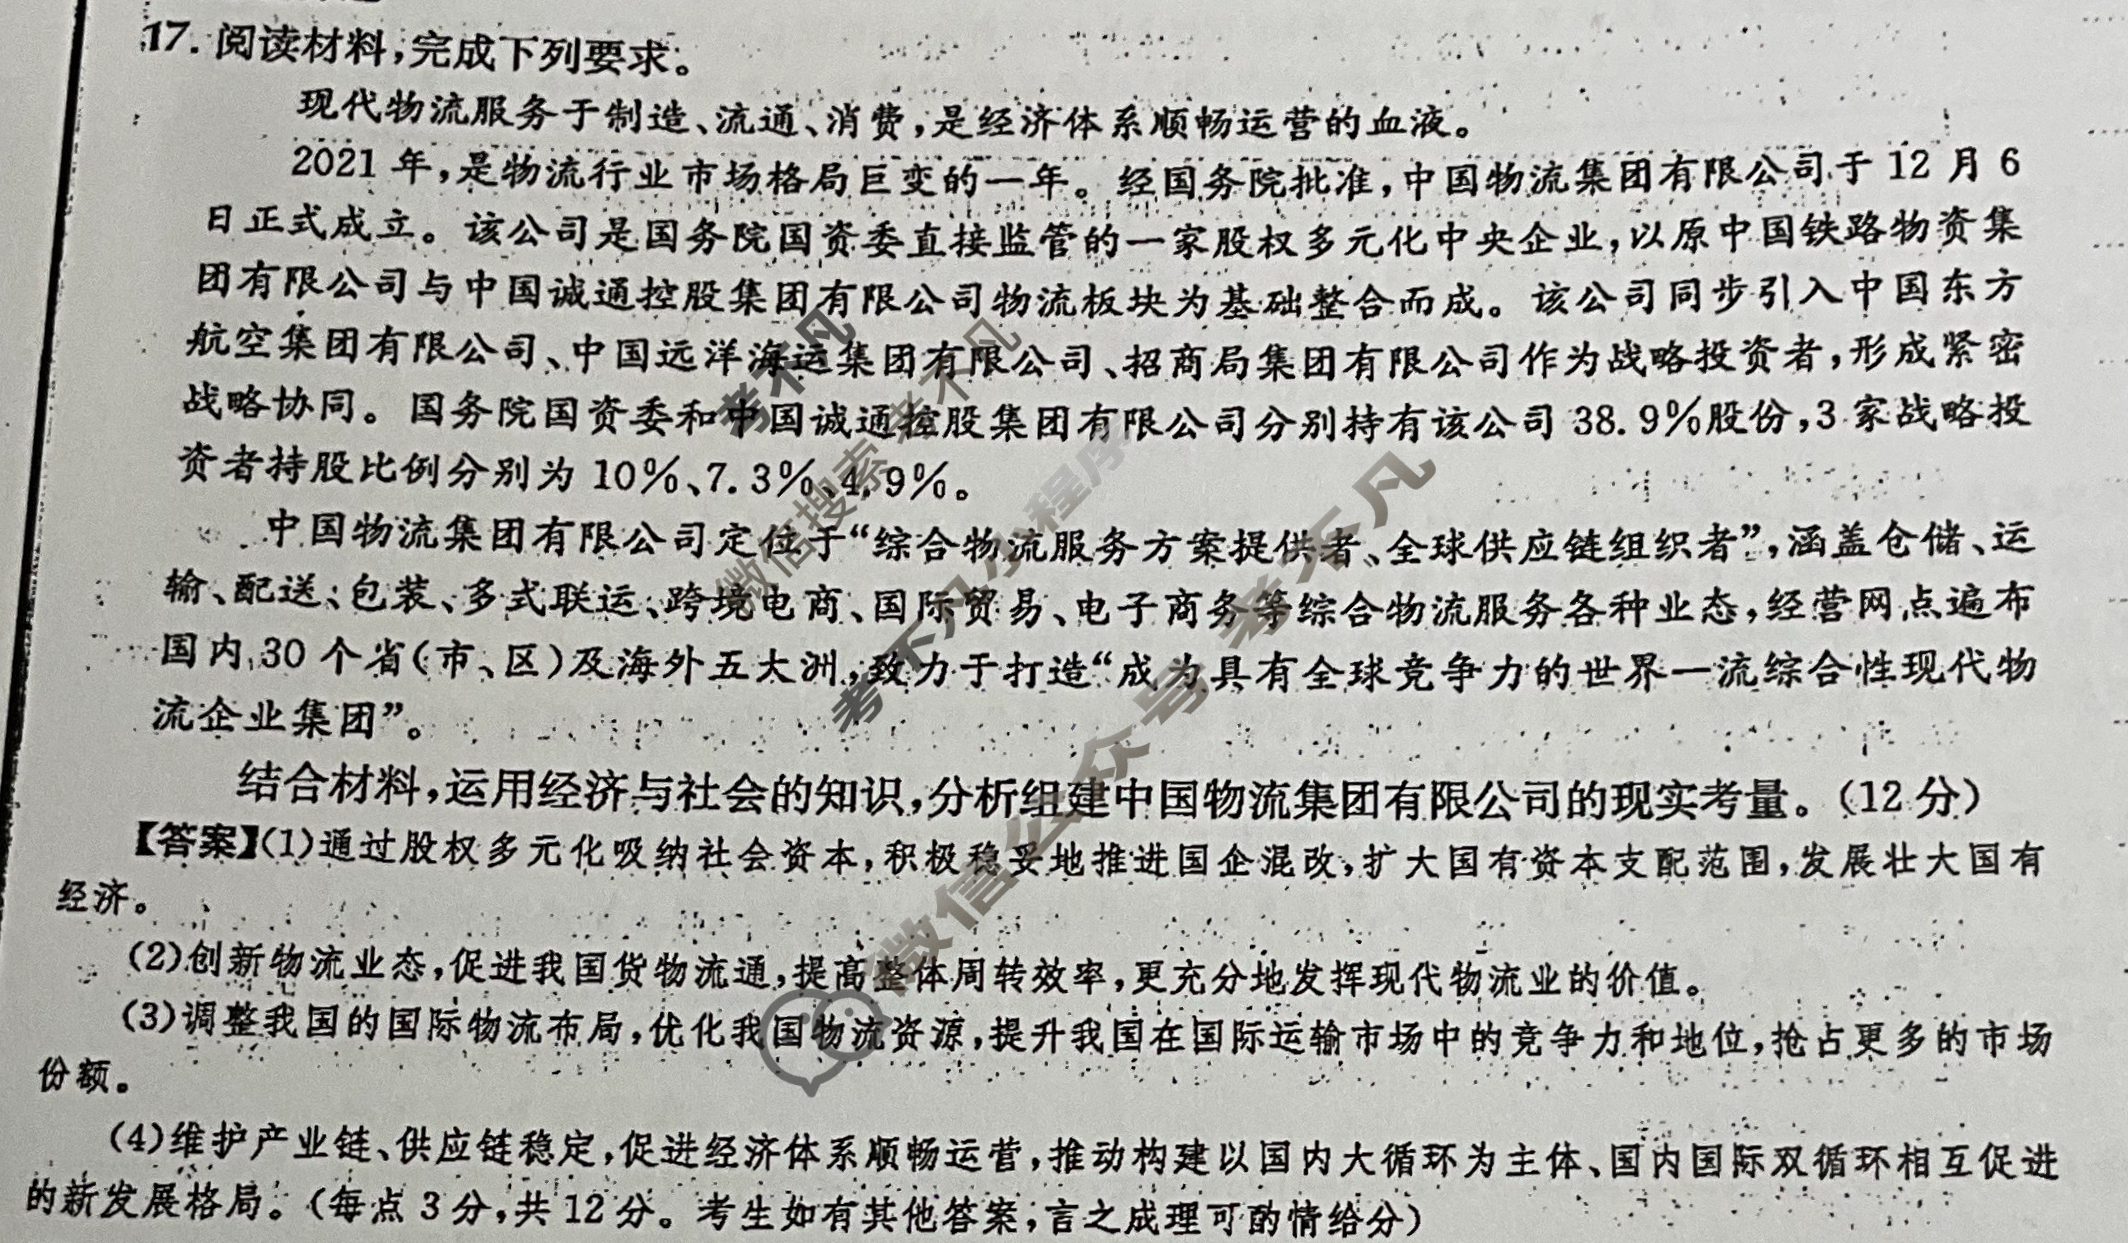 17. 阅读材料,完成下列要求。
现代物流服务于制造、流通、消费,是经济体系顺畅运营的血液。
2021年,是物流行业市场格局巨变的一年。经国务院批准,中国物流集团有限公司于12月6
日正式成立。该公司是国务院国资委直接监管的一家股权多元化中央企业,以原中国铁路物资集
团有限公司与中国诚通控股集团有限公司物流板块为基础整合而成。该公司同步引入中国东方
航空集团有限公司、中国远洋海运集团有限公司、招商局集团有限公司作为战略投资者,形成紧密
战略协同。国务院国资委和中国诚通控股集团有限公司分别持有该公司38.9%股份,3家战略投
资者持股比例分别为10%、7.3%、4.9%。
中国物流集团有限公司定位于“综合物流服务方案提供者、全球供应链组织者”,涵盖仓储、运
输、配送、包装、多式联运、跨境电商、国际贸易、电子商务等综合物流服务各种业态,经营网点遍布
国内30个省(市、区)及海外五大洲,致力于打造“成为具有全球竞争力的世界一流综合性现代物
流企业集团”。
结合材料,运用经济与社会的知识,分析组建中国物流集团有限公司的现实考量。(12分)
【答案】(1)通过股权多元化吸纳社会资本,积极稳妥地推进国企混改,扩大国有资本支配范围,发展壮大国有
经济。
(2)创新物流业态,促进我国货物流通,提高整体周转效率,更充分地发挥现代物流业的价值。
(3)调整我国的国际物流布局,优化我国物流资源,提升我国在国际运输市场中的竞争力和地位,抢占更多的市场
份额。
(4)维护产业链、供应链稳定,促进经济体系顺畅运营,推动构建以国内大循环为主体、国内国际双循环相互促进
的新发展格局。(每点3分,共12分。考生如有其他答案,言之成理可酌情给分)
考不凡
微信搜索考不凡
考不凡小程序
微信公众号 考不凡